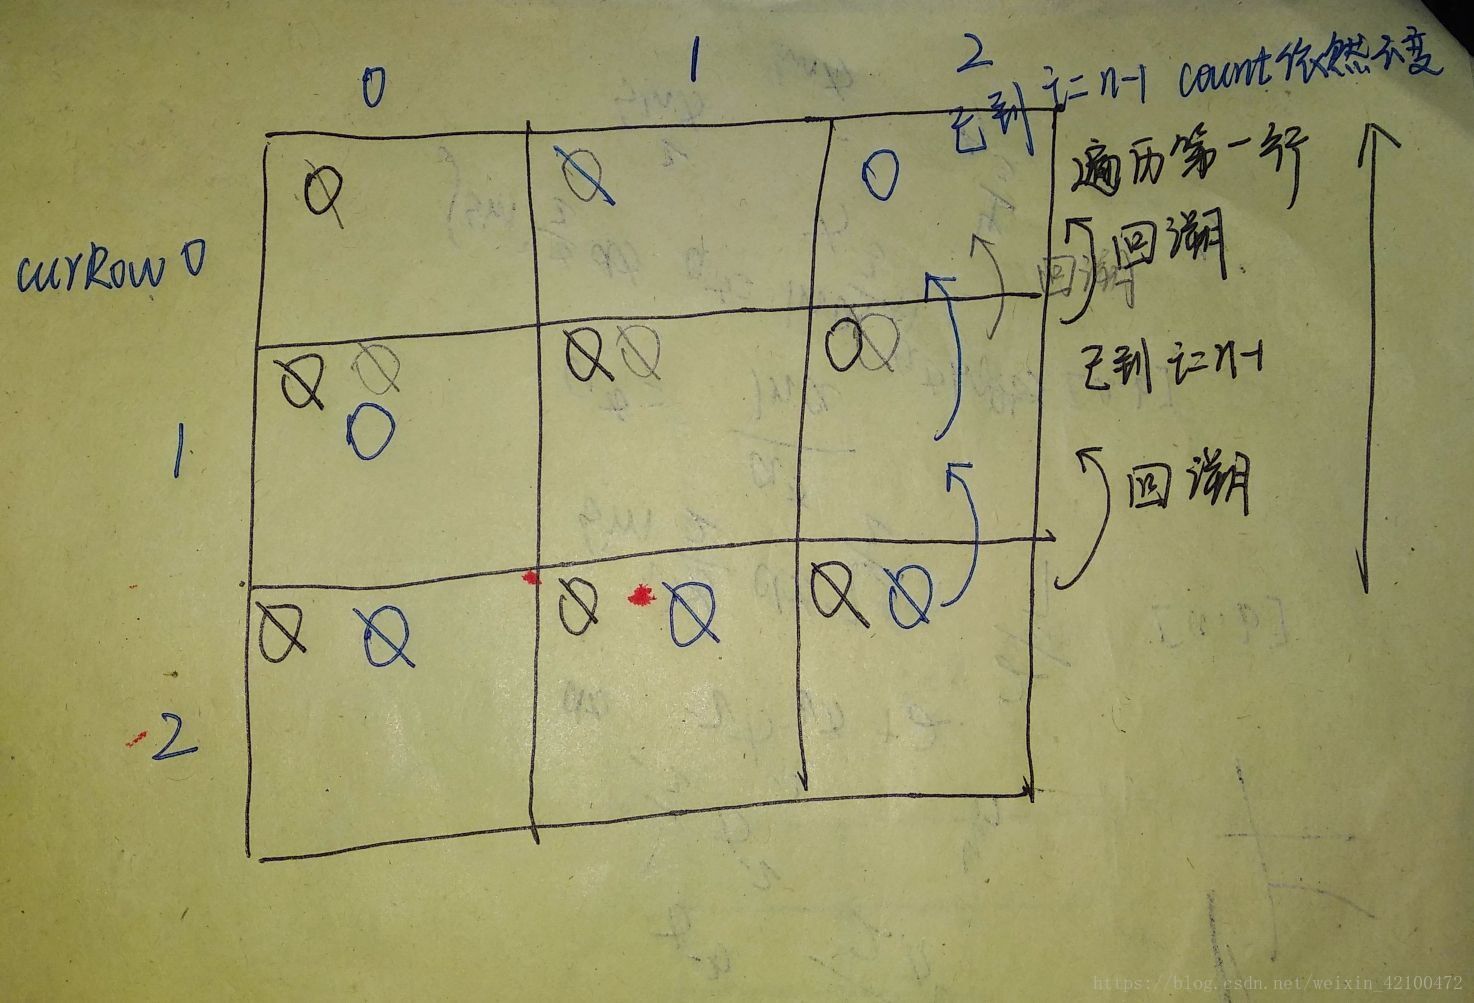 0 1 2
已到 i=n-1 count依然不变
遍历第一行
回溯
curRow 0
回溯
已到 i=n-1
1
回溯
2
https://blog.csdn.net/weixin_42100472